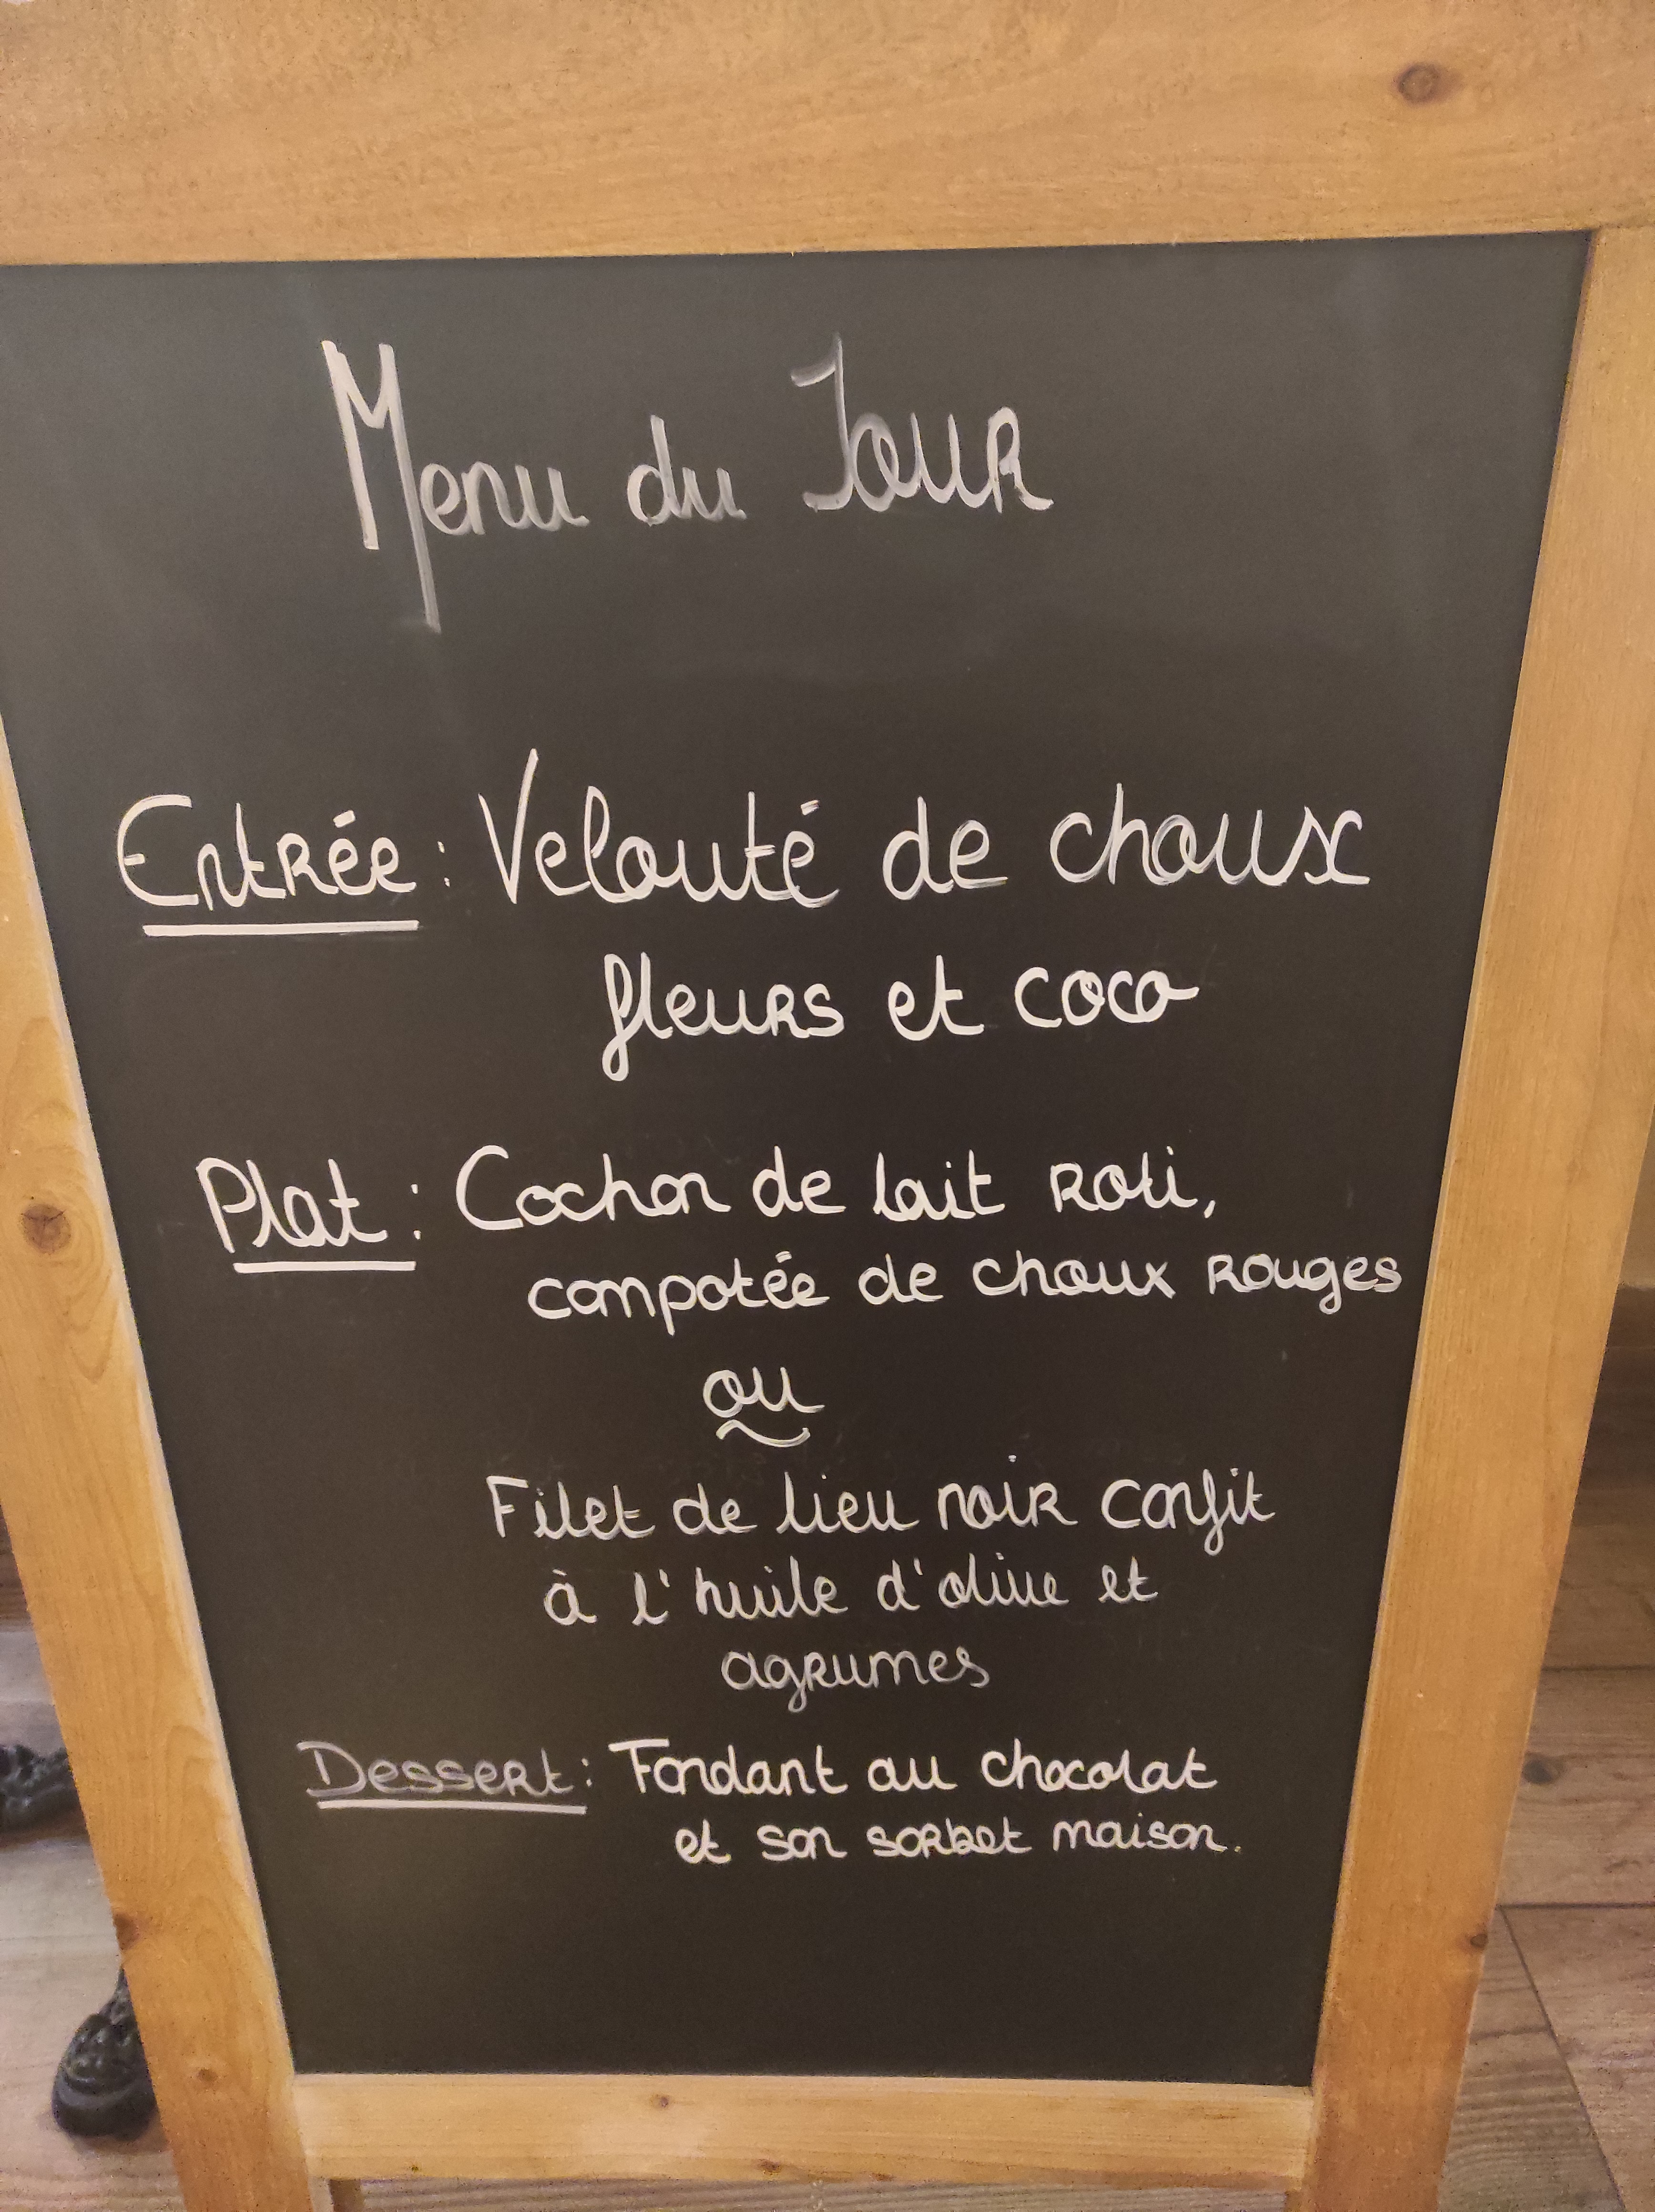 Menu du Jour
Entrée : Velouté de choux
fleurs et coco
Plat : Cochon de lait Roti,
compotée de choux Rouges
ou
Filet de lieu noir confit
à l'huile d'olive et
agrumes
Dessert : Fondant au chocolat
et son sorbet maison.